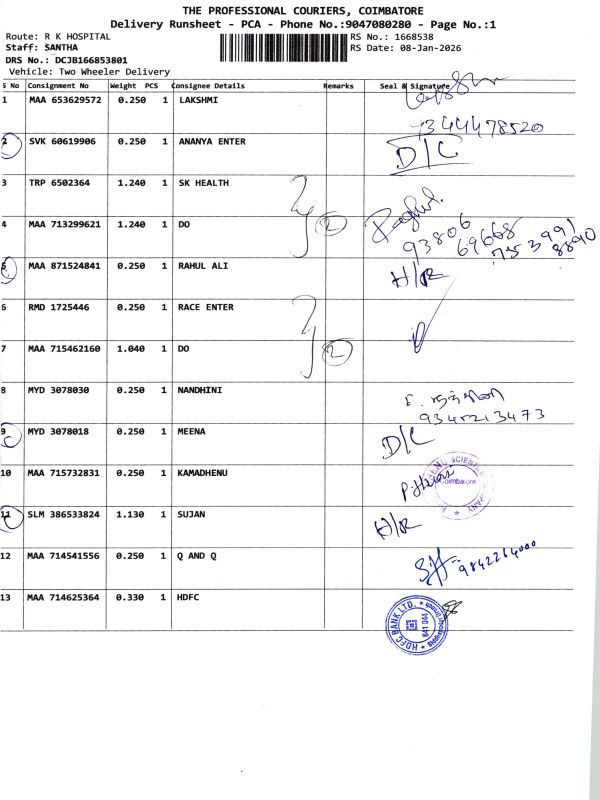 THE PROFESSIONAL COURIERS, COIMBATORE
Delivery Runsheet - PCA - Phone No.:9047080280 - Page No.:1
Route: R K HOSPITAL RS No.: 1668538
Staff: SANTHA RS Date: 08-Jan-2026
DRS No.: DCJB166853801
Vehicle: Two Wheeler Delivery
S No Consignment No Weight PCS Consignee Details Remarks Seal & Signature
1 MAA 653629572 0.250 1 LAKSHMI
7344478520
2 SVK 60619906 0.250 1 ANANYA ENTER D/C
3 TRP 6502364 1.240 1 SK HEALTH
4 MAA 713299621 1.240 1 DO 2
93806
69668
753991
8890
5 MAA 871524841 0.250 1 RAHUL ALI H/R
6 RMD 1725446 0.250 1 RACE ENTER
7 MAA 715462160 1.040 1 DO 2
8 MYD 3078030 0.250 1 NANDHINI
9345213473
9 MYD 3078018 0.250 1 MEENA D/C
10 MAA 715732831 0.250 1 KAMADHENU
Coimbatore
11 SLM 386533824 1.130 1 SUJAN H/R
12 MAA 714541556 0.250 1 Q AND Q 9842264000
13 MAA 714625364 0.330 1 HDFC
HDFC BANK LTD.
641 044